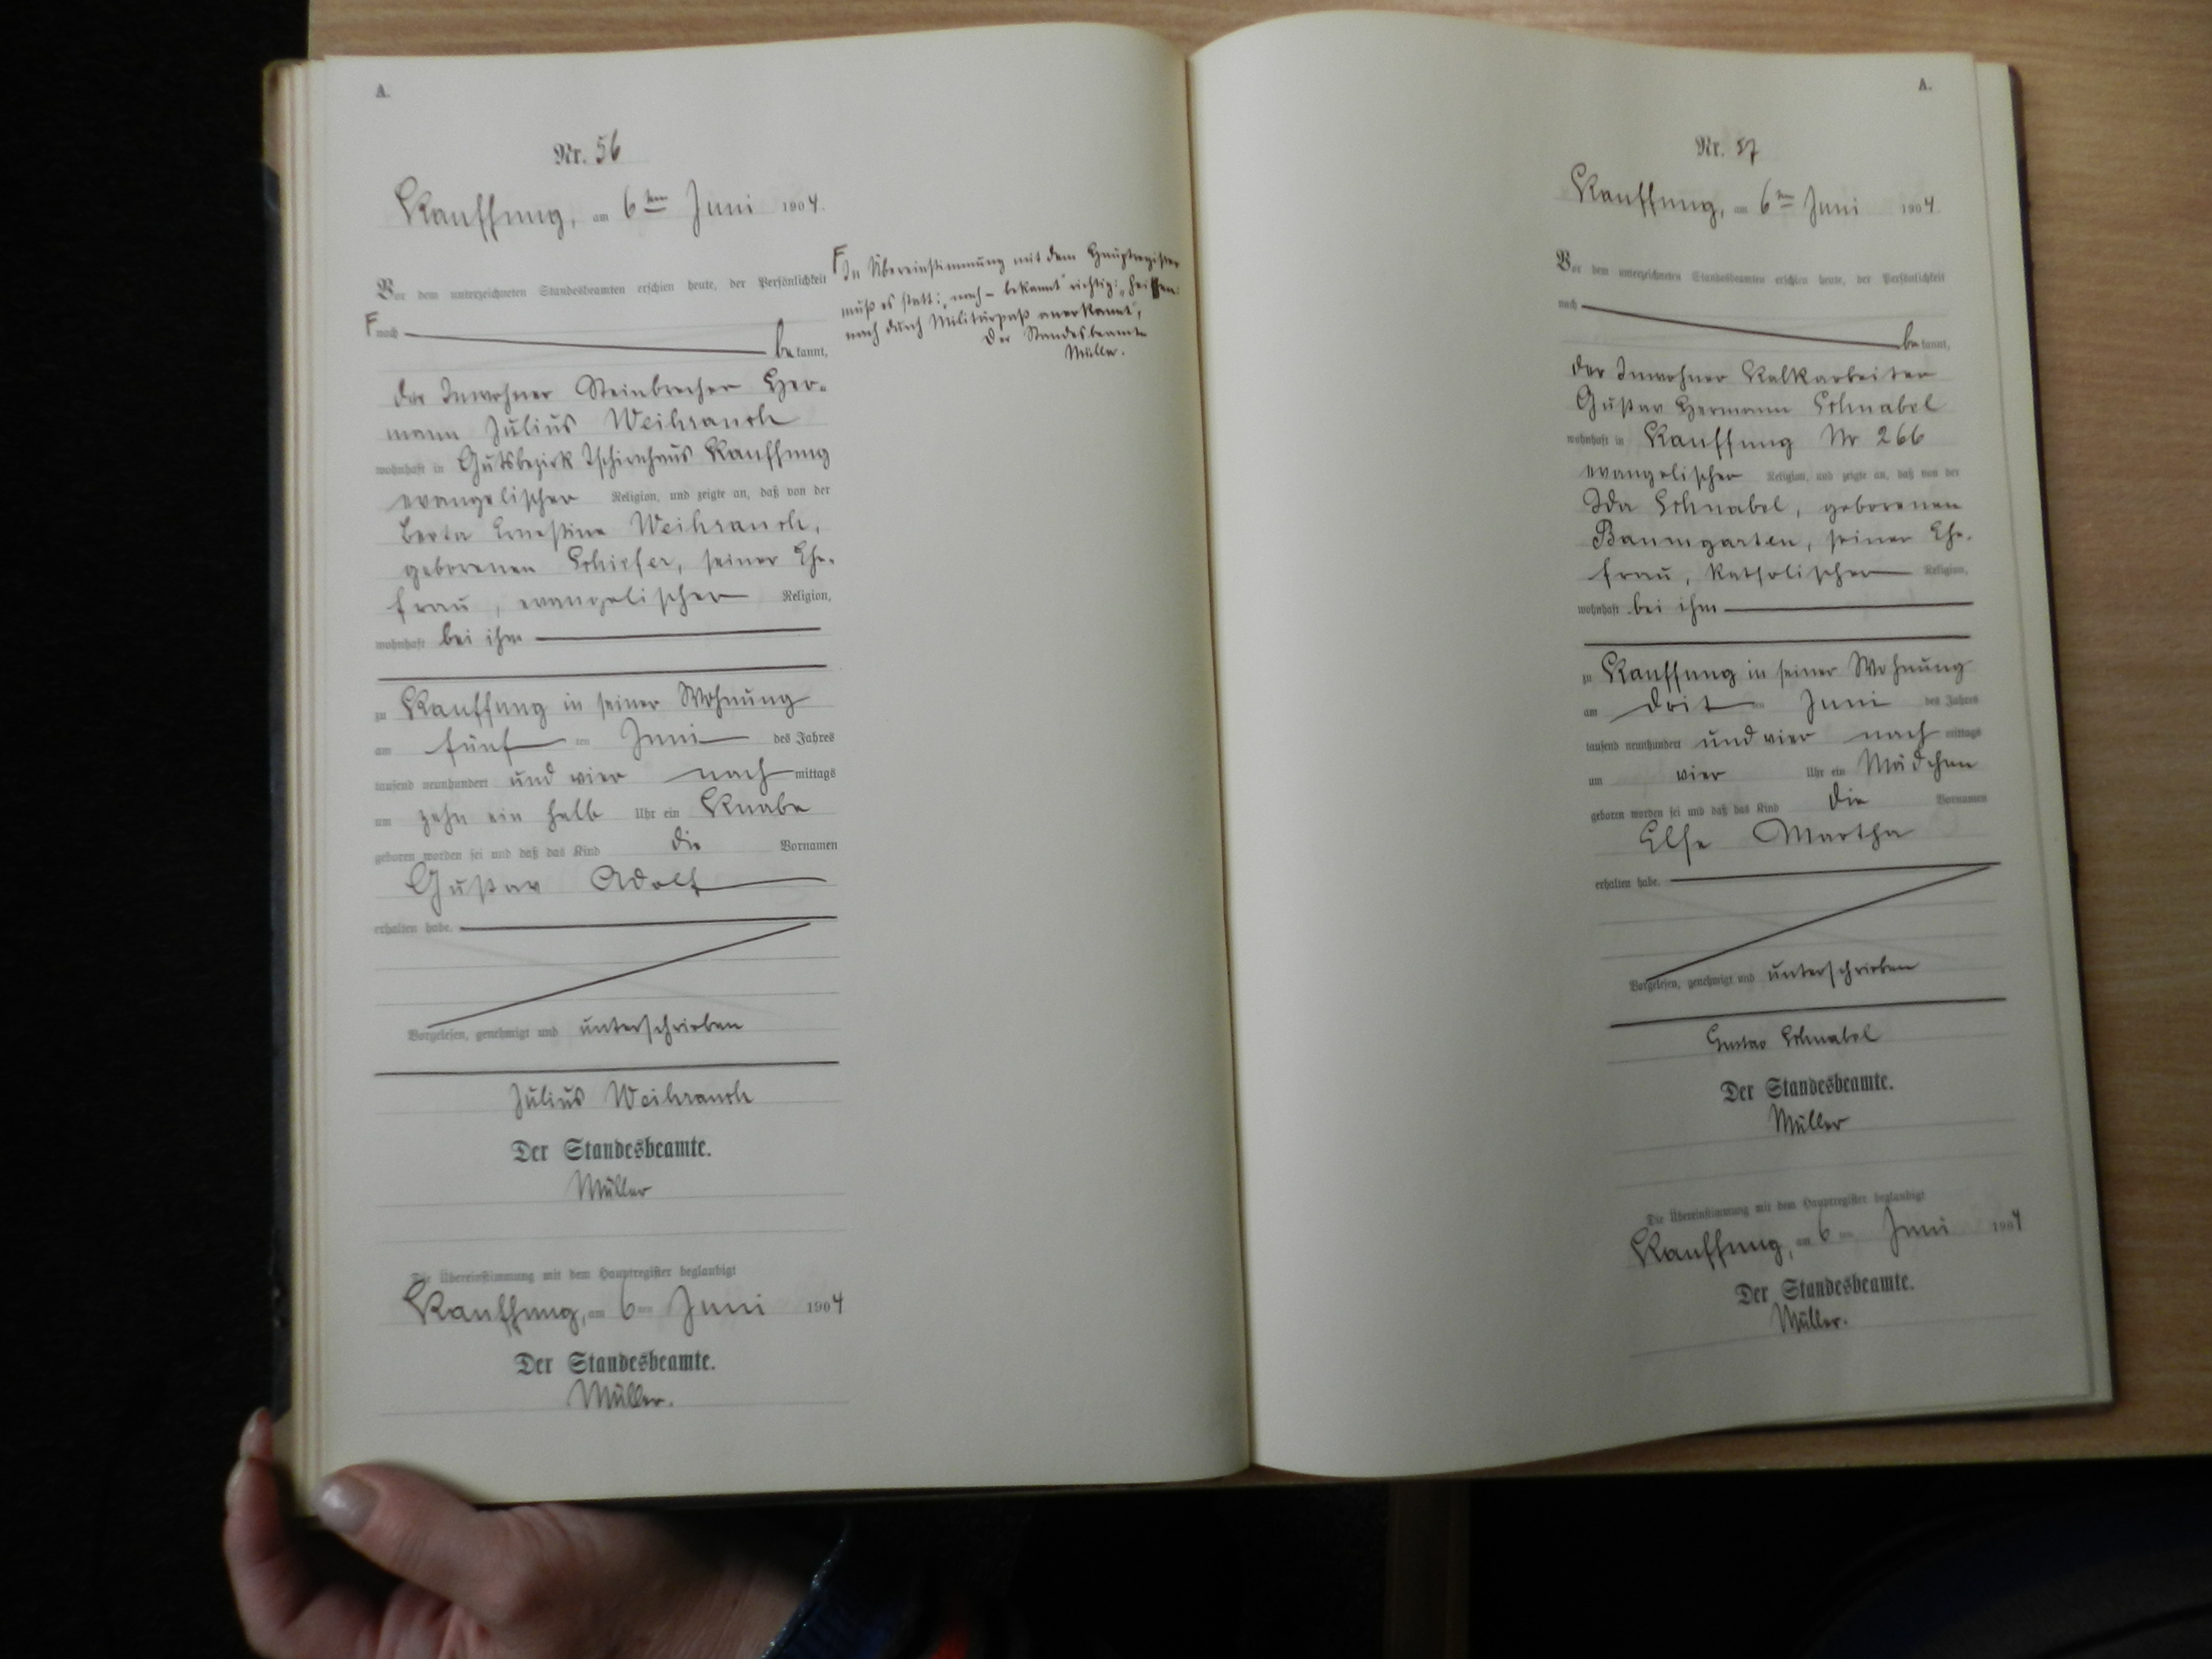 A.
Nr. 56
Kauffung, am 6ten Juni 1904.
Vor dem unterzeichneten Standesbeamten erschien heute, der Persönlichkeit
F nach
bekannt,
der Inwohner Steinbrecher Her-
mann Julius Weihrauch
wohnhaft in Gutsbezirk Tschirnhaus Kauffung
evangelischer Religion, und zeigte an, daß von der
Berta Ernestine Weihrauch,
geborenen Schiefer, seiner Ehe-
frau, evangelischer Religion,
wohnhaft bei ihm
zu Kauffung in seiner Wohnung
am fünften Juni des Jahres
tausend neunhundert und vier nachmittags
um zehn ein halb Uhr ein Knabe
geboren worden sei und daß das Kind die Vornamen
Gustav Adolf
erhalten habe.
Vorgelesen, genehmigt und unterschrieben
Julius Weihrauch
Der Standesbeamte.
Müller
Die Übereinstimmung mit dem Hauptregister beglaubigt
Kauffung, am 6ten Juni 1904
Der Standesbeamte.
Müller.
F In Übereinstimmung mit dem Hauptregister
muß es statt: "nach - bekannt" richtig: "heißen:
nach durch Militärpaß anerkannt",
Der Standesbeamte
Müller.
A.
Nr. 57
Kauffung, am 6ten Juni 1904.
Vor dem unterzeichneten Standesbeamten erschien heute, der Persönlichkeit
nach
bekannt,
der Inwohner Kalkarbeiter
Gustav Hermann Schnabel
wohnhaft in Kauffung Nr 266
evangelischer Religion, und zeigte an, daß von der
Ida Schnabel, geborenen
Baumgarten, seiner Ehe-
frau, katholischer Religion,
wohnhaft bei ihm
zu Kauffung in seiner Wohnung
am dritten Juni des Jahres
tausend neunhundert und vier nachmittags
um vier Uhr ein Mädchen
geboren worden sei und daß das Kind die Vornamen
Else Martha
erhalten habe.
Vorgelesen, genehmigt und unterschrieben
Gustav Schnabel
Der Standesbeamte.
Müller
Die Übereinstimmung mit dem Hauptregister beglaubigt
Kauffung, am 6ten Juni 1904
Der Standesbeamte.
Müller.